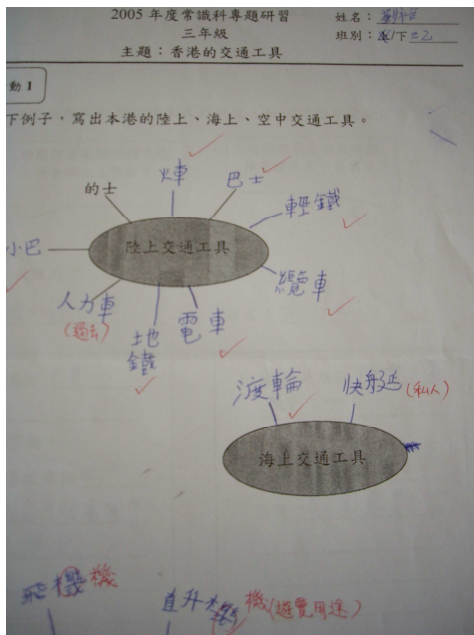 2005 年度常識科專題研習
三年級
主題：香港的交通工具
姓名：
班別： /下
動 1
下例子，寫出本港的陸上、海上、空中交通工具。
的士
火車
巴士
輕鐵
小巴
陸上交通工具
纜車
人力車
(過去)
地鐵
電車
渡輪
快艇
(私人)
海上交通工具
飛機
機
直升機
機(遊覽用途)